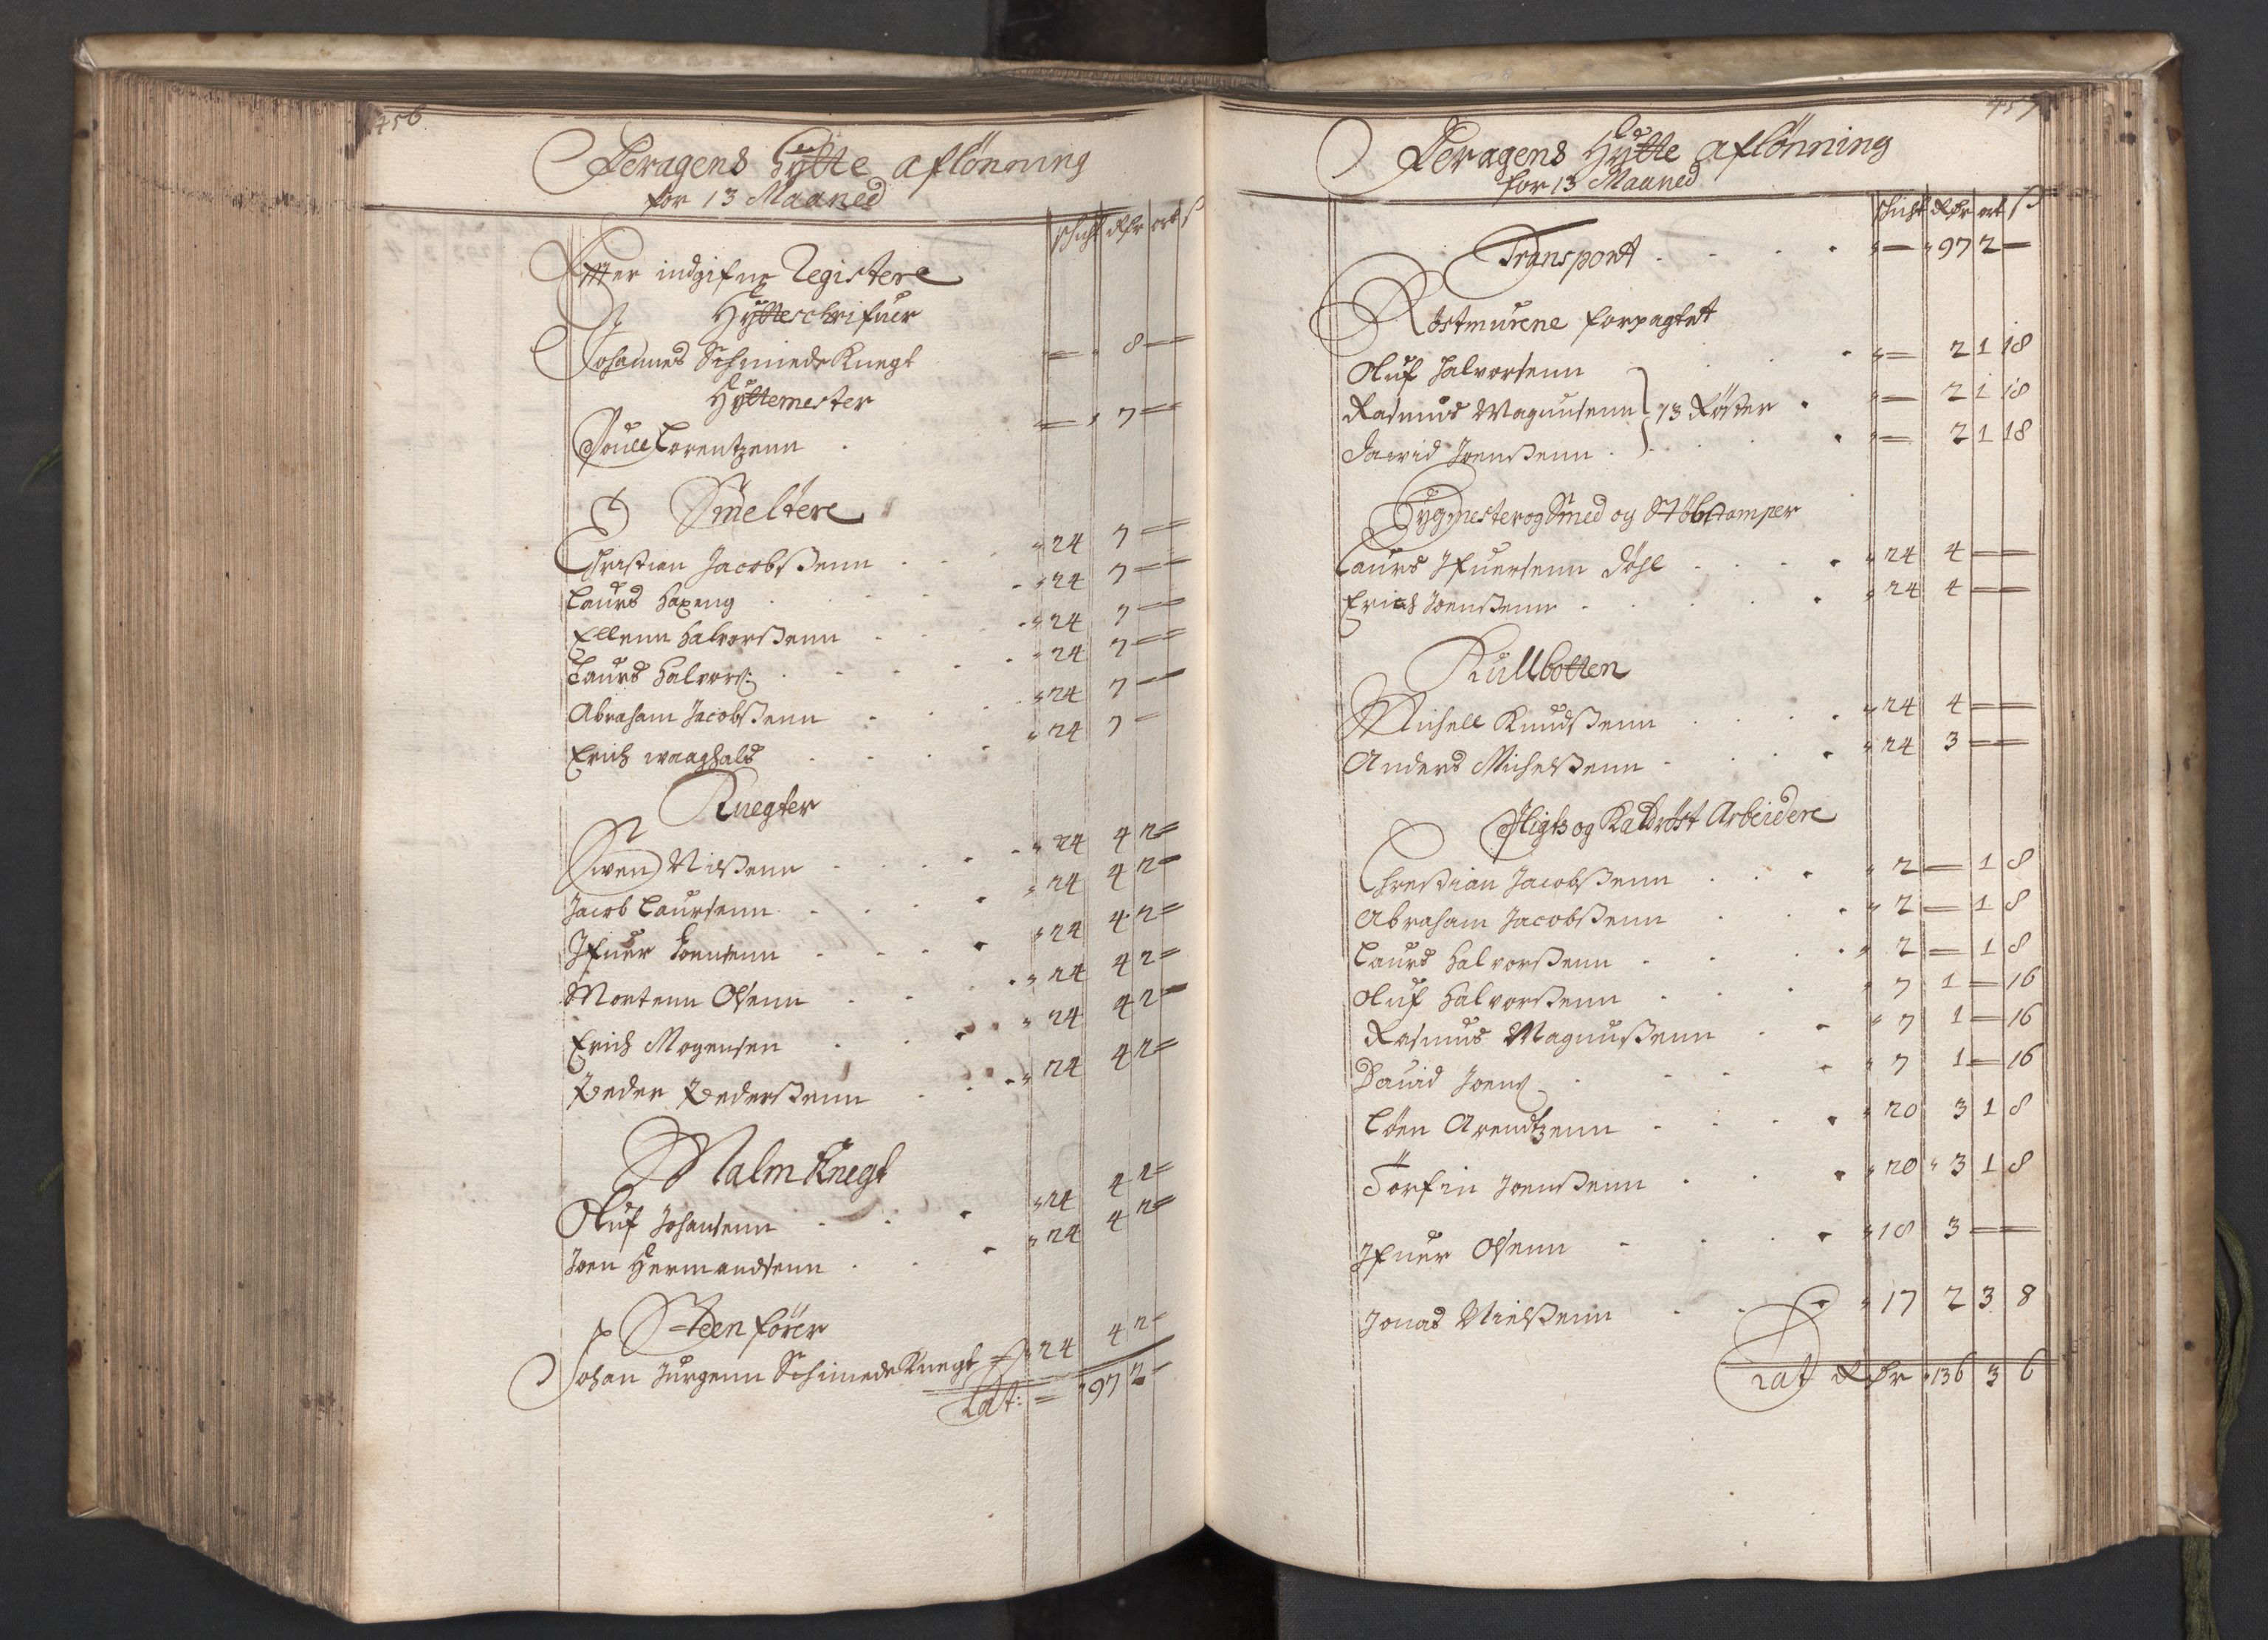 456
Feragens Hytte aflönning
for 13 Maaned
schicht Rdr ort ß
Efter indgifne Registere
Hytteschrifuer
Johannes Schmiede Knegt = 8 =
Hyttemester
Poull Lorentzenn . = 7 =
Smeltere
Christian Jacobsßenn . . 24 7 =
Laurs Haxeng . . . 24 7 =
Ellenn Halvorsßenn . . 24 7 =
Laurs Halvorß: . . . 24 7 =
Abraham Jacobsßenn . . 24 7 =
Erich waaghals . . . 24 7 =
Knegter
Swen Nilsßenn . . . 24 4 2 =
Jacob Laursenn . . . 24 4 2 =
Ifuer Joensenn . . . 24 4 2 =
Mortenn Olsenn . . . 24 4 2 =
Erich Mogensen . . . 24 4 2 =
Peder Pedersßenn . . 24 4 2 =
Malm Knegt
Oluf Johansenn . . . 24 4 2 =
Joen Hermandsenn . . 24 4 2 =
Steen förer
Johan Jurgenn Schmiede Knegt = 24 4 2 =
Lat: = 97 2 -
457
Feragens Hytte aflönning
for 13 Maaned
schicht Rdr ort ß
Transport . . . . — 97 2 —
Röstmurene forpagtet
Oluf Halvorsenn . . = 2 1 18
Rasmus Magnusenn } 13 Röster . = 2 1 18
Dawid Joensßenn . . = 2 1 18
Tygmester og Smed og Stöbstamper
Laurs Ifuersenn Döhl . . . 24 4 =
Erich Joensßenn . . . . 24 4 =
Kullbotten
Michell Knudsßenn . . . . 24 4 =
Anders Michelsßenn . . . 24 3 =
Sligts og Kaldröst Arbeidere
Chrestian Jacobsßenn . . . 2 — 1 8
Abraham Jacobsßenn . . . 2 — 1 8
Laurs Halvorsßenn . . . 2 — 1 8
Oluf Halvorsßenn . . . 7 1 — 16
Rasmus Magnusßenn . . 7 1 — 16
Dauid Joenß . . . . 7 1 — 16
Cöen Arendtzenn . . . . 20 3 1 8
Torfin Joensßenn . . . 20 3 1 8
Ifuer Olsenn . . . . 18 3 —
Jonas Nielsßenn . . . 17 2 3 8
Lat Rdr 136 3 6